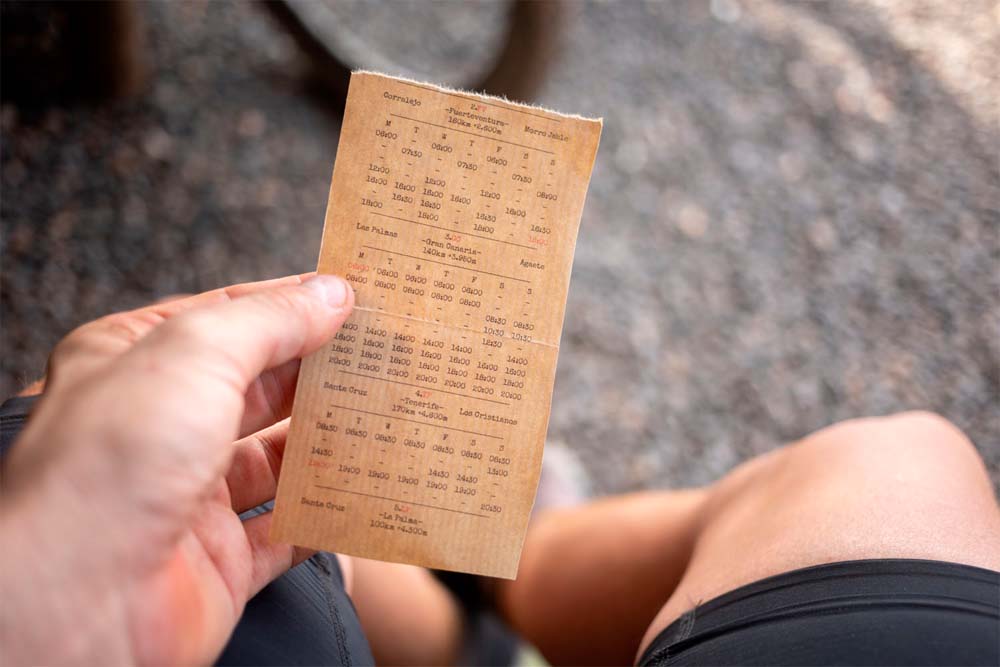 Corralejo 2. Morro Jable
-Fuerteventura-
160km +2,600m
M T W T F S S
06:00 - 06:00 - 06:00 - -
- 07:30 - 07:30 - 07:30 -
- - - - - - 08:30
12:00 - 12:00 - 12:00 - -
16:00 16:00 16:00 16:00 - 16:00 -
- 16:30 16:30 - 16:30 - 16:30
18:00 - 18:00 - 18:00 - 18:00
Las Palmas 3. Agaete
-Gran Canaria-
140km +3.950m
M T W T F S S
06:00 06:00 06:00 06:00 06:00 - -
08:00 08:00 08:00 08:00 08:00 - -
- - - - 08:30 08:30
- - - - 10:30 10:30
- - - 12:30 -
14:00 14:00 14:00 14:00 - 14:00
16:00 16:00 16:00 16:00 16:00 16:00 16:00
18:00 18:00 18:00 18:00 18:00 18:00 18:00
20:00 20:00 20:00 20:00 20:00 20:00 20:00
Santa Cruz 4. Los Cristianos
-Tenerife-
170km +4.800m
M T W T F S S
08:30 08:30 08:30 08:30 08:30 08:30 08:30
- - - - - - 13:00
14:30 - - - 14:30 14:30 -
19:00 19:00 19:00 19:00 19:00 19:00 -
- - - - - - 20:30
Santa Cruz 5.
-La Palma-
100km +4.300m